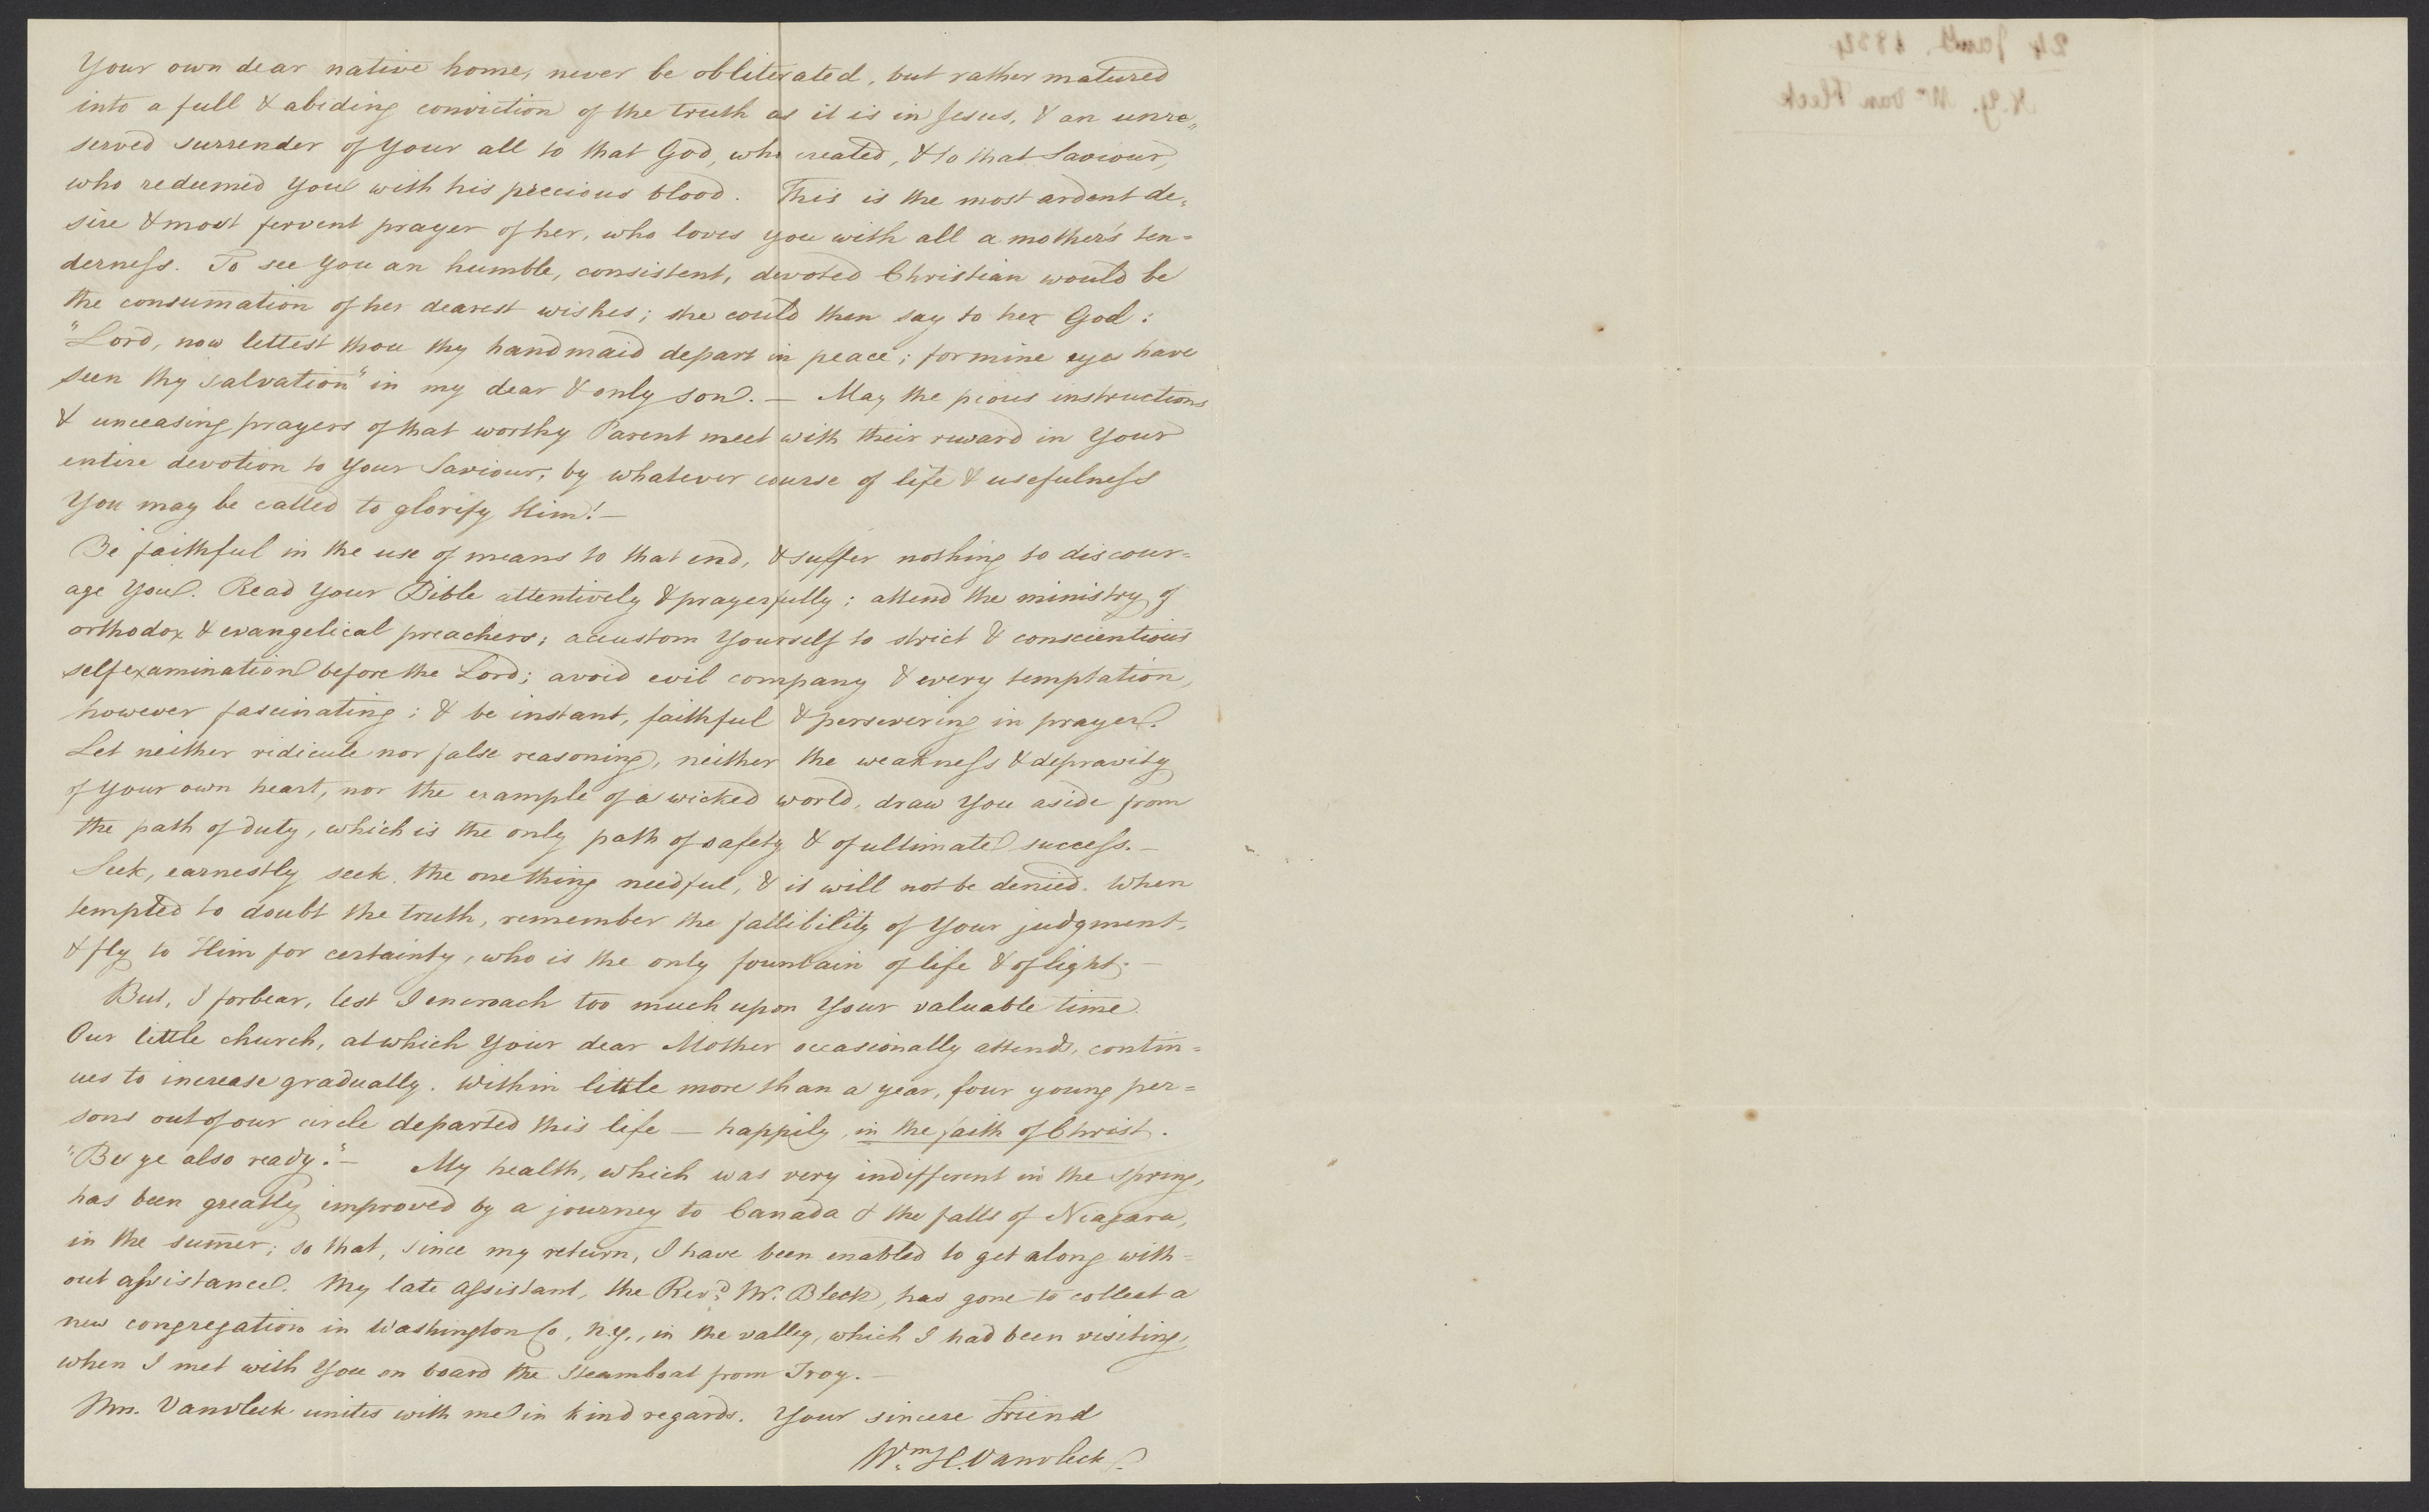 Your own dear native home, never be obliterated, but rather matured
into a full & abiding conviction of the truth as it is in Jesus, & an unre„
served surrender of Your all to that God, who created, & to that Saviour,
who redeemed You with his precious blood. This is the most ardent de„
sire & most fervent prayer of her, who loves you with all a mother's ten=
derness. To see You an humble, consistent, devoted Christian would be
the consumation of her dearest wishes; she could then say to her God:
"Lord, now lettest thou thy handmaid depart in peace; for mine eyes have
seen thy salvation" in my dear & only son. — May the pious instructions
& unceasing prayers of that worthy Parent meet with their reward in Your
entire devotion to Your Saviour, by whatever course of life & usefulness
You may be called to glorify Him! —
Be faithful in the use of means to that end, & suffer nothing to discour=
age You. Read Your Bible attentively & prayerfully; attend the ministry of
orthodox & evangelical preachers; accustom Yourself to strict & conscientious
selfexamination before the Lord; avoid evil company & every temptation,
however fascinating; & be instant, faithful & persevering in prayer.
Let neither ridicule nor false reasoning, neither the weakness & depravity
of Your own heart, nor the example of a wicked world, draw You aside from
the path of duty, which is the only path of safety & of ultimate success. —
Seek, earnestly seek the one thing needful, & it will not be denied. When
tempted to doubt the truth, remember the fallibility of Your judgment,
& fly to Him for certainty, who is the only fountain of life & of light. —
But, I forbear, lest I encroach too much upon Your valuable time.
Our little church, at which Your dear Mother occasionally attends, contin=
ues to increase gradually. Within little more than a year, four young per=
sons out of our circle departed this life — happily, in the faith of Christ.
"Be ye also ready." — My health, which was very indifferent in the spring,
has been greatly improved by a journey to Canada & the falls of Niagara,
in the sumer; so that, since my return, I have been enabled to get along with=
out assistance. My late assistant, the Revd. Mr. Bleck, has gone to collect a
new congregation in Washington Co, N.Y., in the valley, which I had been visiting,
when I met with You on board the Steamboat from Troy. —
Mrs. Vanvleck unites with me in kind regards. Your sincere Friend
Wm. H. Vanvleck.
24 Jany. 1834
N.Y. Mr Van Vleck